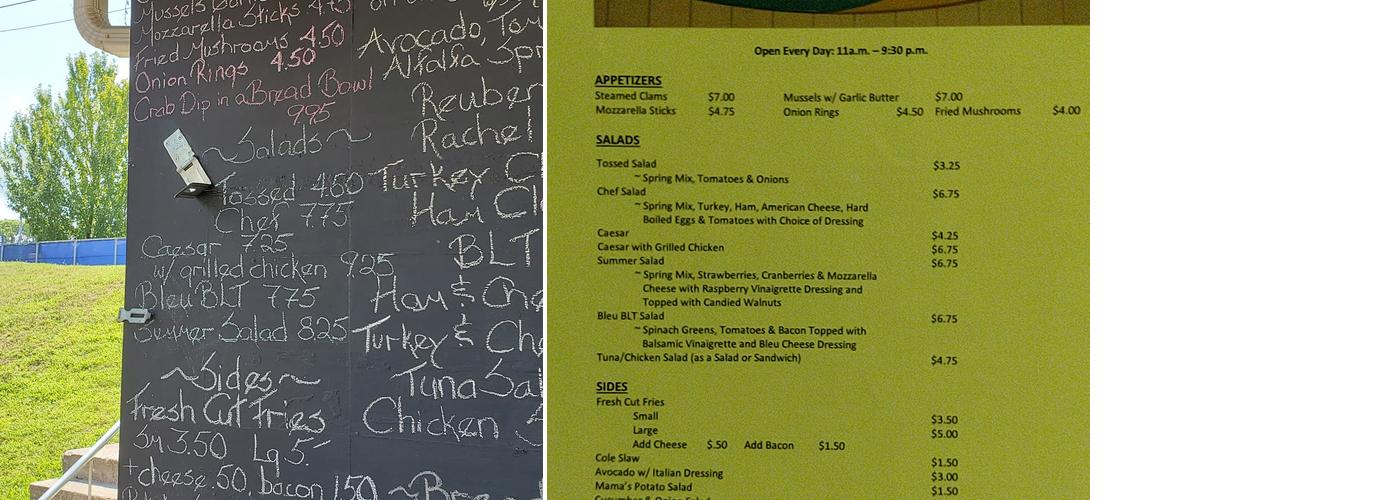 Mussels
Mozzarella Sticks 4.75
Fried Mushrooms 4.50
Onion Rings 4.50
Crab Dip in a Bread Bowl
9.95
~Salads~
Tossed 4.50
Chef 7.75
Caesar 7.25
w/ grilled chicken 9.25
Bleu BLT 7.75
Summer Salad 8.25
~Sides~
Fresh Cut Fries
Sm 3.50 Lg 5.
+cheese .50, bacon 1.50
Avocado, Tom
Alfalfa Spr
Reuben
Rachel
Turkey C
Ham Cl
BLT
Ham & Che
Turkey & Ch
Tuna Sal
Chicken S
~Bre
Open Every Day: 11a.m. – 9:30 p.m.
APPETIZERS
Steamed Clams $7.00 Mussels w/ Garlic Butter $7.00
Mozzarella Sticks $4.75 Onion Rings $4.50 Fried Mushrooms $4.00
SALADS
Tossed Salad $3.25
~ Spring Mix, Tomatoes & Onions
Chef Salad $6.75
~ Spring Mix, Turkey, Ham, American Cheese, Hard
Boiled Eggs & Tomatoes with Choice of Dressing
Caesar $4.25
Caesar with Grilled Chicken $6.75
Summer Salad $6.75
~ Spring Mix, Strawberries, Cranberries & Mozzarella
Cheese with Raspberry Vinaigrette Dressing and
Topped with Candied Walnuts
Bleu BLT Salad $6.75
~ Spinach Greens, Tomatoes & Bacon Topped with
Balsamic Vinaigrette and Bleu Cheese Dressing
Tuna/Chicken Salad (as a Salad or Sandwich) $4.75
SIDES
Fresh Cut Fries
Small $3.50
Large $5.00
Add Cheese $.50 Add Bacon $1.50
Cole Slaw $1.50
Avocado w/ Italian Dressing $3.00
Mama's Potato Salad $1.50
Cucumber & Onion Salad